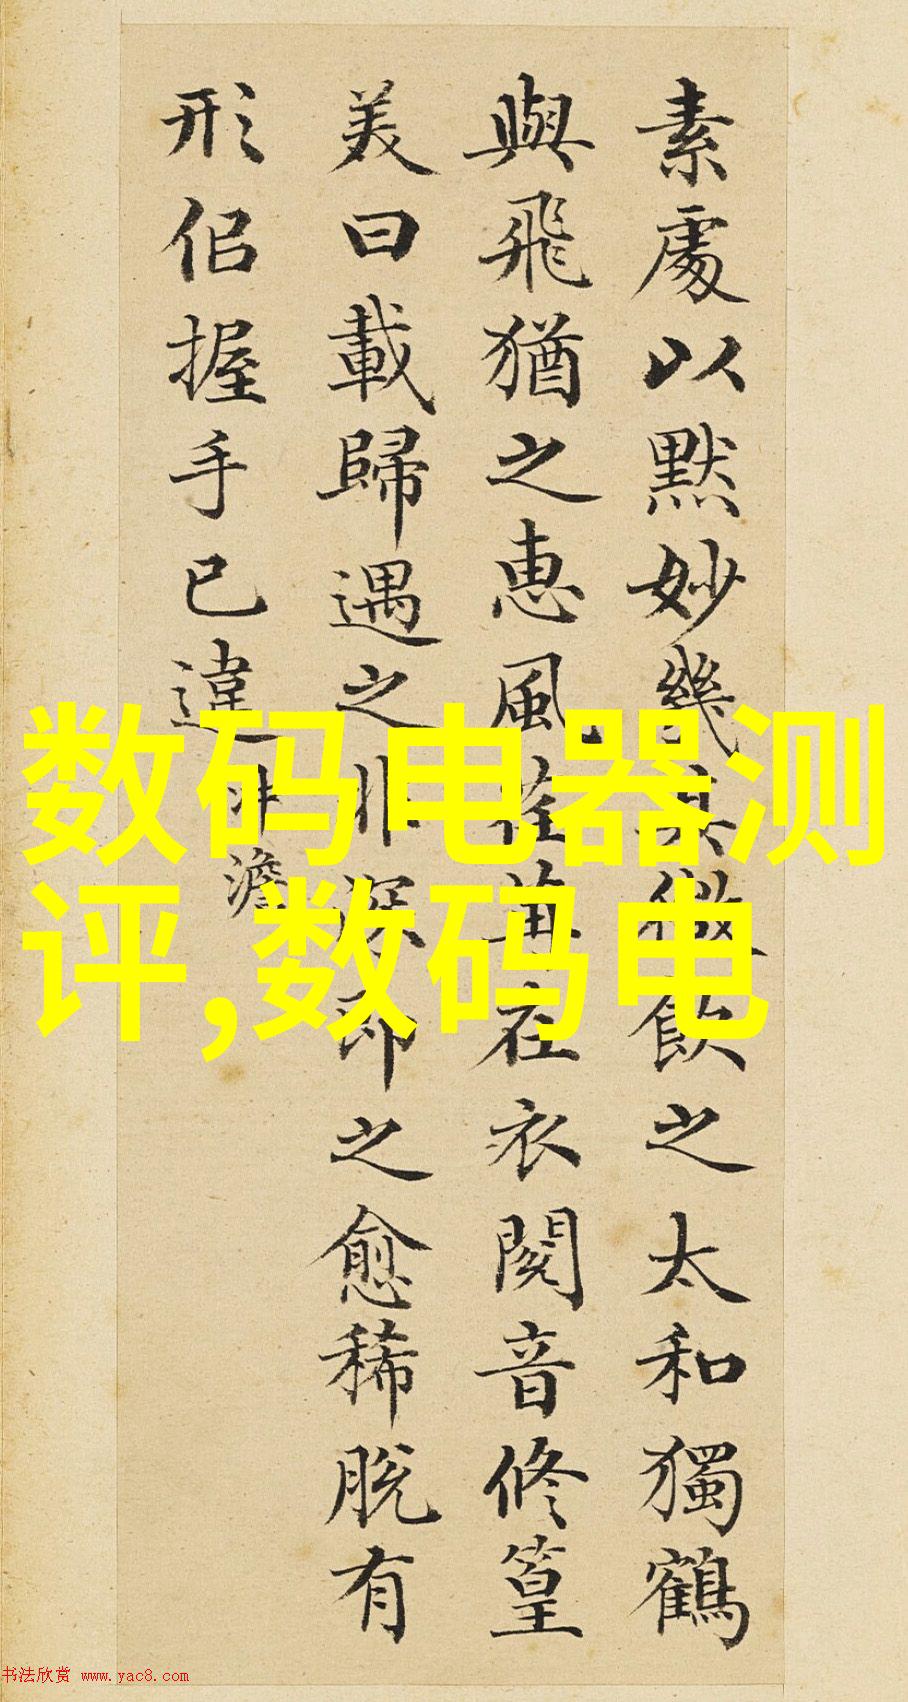 素處以默妙幾其微飲之太和獨鶴
與飛猶之惠風荏苒在衣閱音修篁
美曰載歸遇之非深即之愈稀脫有
形佀握手已違 沖澹
数码电器测
评,数码电
书法欣赏 www.yac8.com